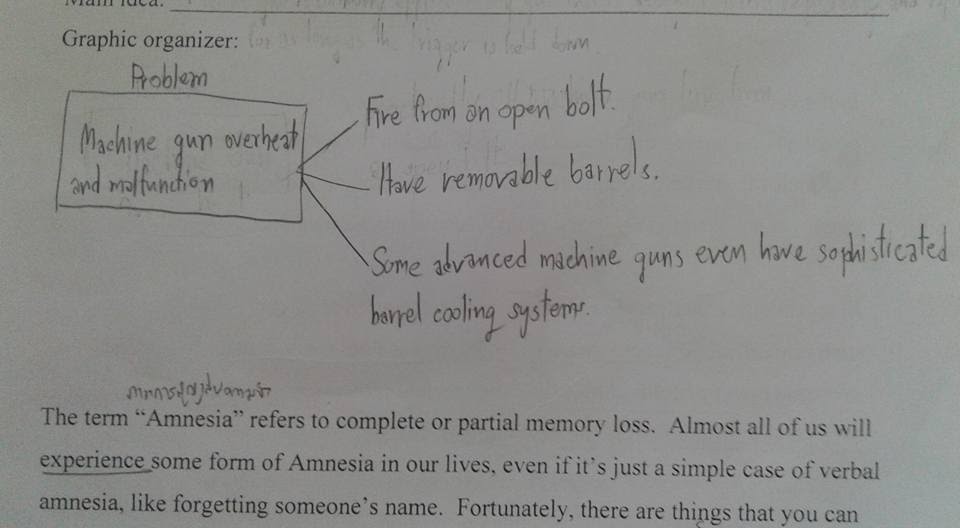 Main idea:
Graphic organizer: for as long as the trigger is held down.
Problem
Machine gun overheat
and malfunction
Fire from an open bolt.
Have removable barrels.
Some advanced machine guns even have sophisticated
barrel cooling systems.
The term “Amnesia” refers to complete or partial memory loss. Almost all of us will
experience some form of Amnesia in our lives, even if it’s just a simple case of verbal
amnesia, like forgetting someone’s name. Fortunately, there are things that you can